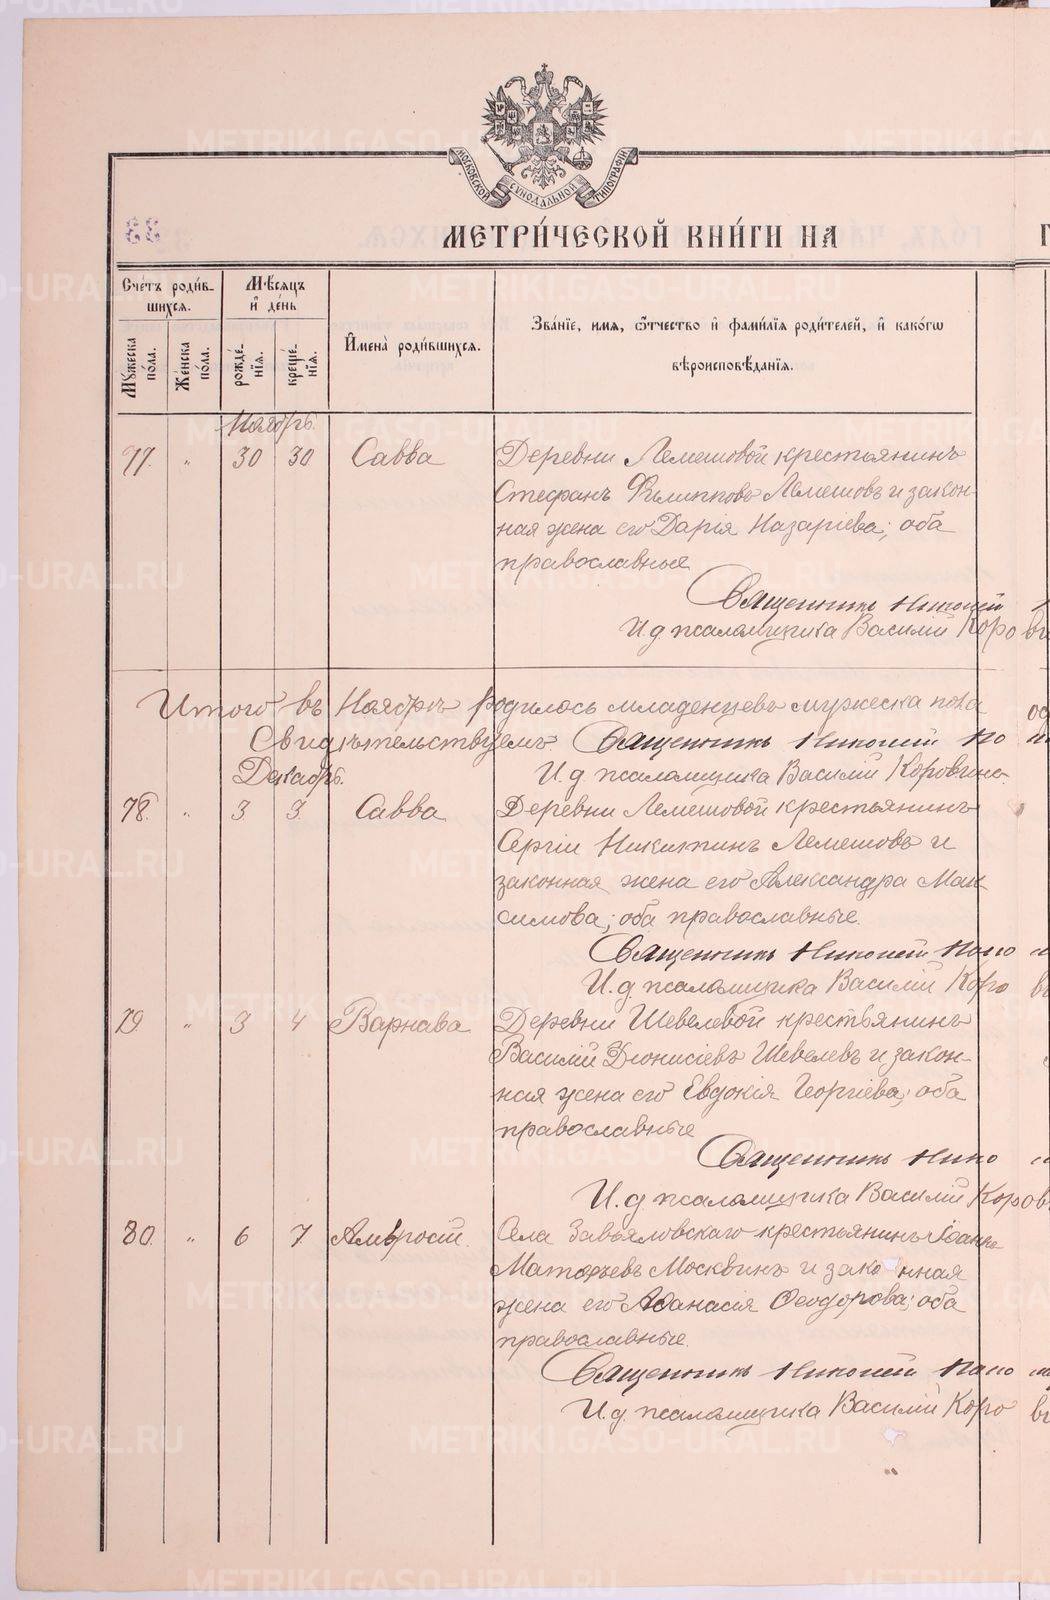 МОСКОВСКОЙ СУНОДАЛЬНОЙ ТИПОГРАФІИ
33
МЕТРИ́ЧЕСКОЙ КНИ́ГИ НА
Сче́тъ роди́в-
шихся.
Мѣ́сяцъ
и҆ де́нь
Мꙋ́жеска
по́ла.
Же́нска
по́ла.
рожде́-
нїѧ.
креще́-
нїѧ.
И҆мена̀ роди́вшихся.
Зва́нїе, имѧ, ѻ҆́тчество и҆ фами́лїѧ роди́телей, и҆ како́гѡ
вѣроисповѣ́данїѧ.
Ноябрь.
77. „ 30 30 Савва Деревни Лемешовой крестьянинъ
Стефанъ Филипповъ Лемешовъ и закон-
ная жена его Дарія Назаріева; оба
православные
Священникъ Николай
И. д. псаломщика Василій Коро
Итого въ Ноябрѣ родилось младенцевъ мужеска пола
Свидѣтельствуемъ Священникъ Николай По
Декабрь.
И. д. псаломщика Василій Коровинъ
78. „ 3 3 Савва Деревни Лемешовой крестьянинъ
Сергій Никитинъ Лемешовъ и
законная жена его Александра Мак-
симова; оба православные.
Священникъ Николай Попо
И. д. псаломщика Василій Коро
79 „ 3 4 Варнава Деревни Шевелевой крестьянинъ
Василій Діонисіевъ Шевелевъ и закон-
ная жена его Евдокія Георгіева; оба
православные
Священникъ Нико
И. д. псаломщика Василій Коров
80. „ 6 7 Амвросій. Села Завьяловскаго крестьянинъ Іоаннъ
Матѳѣевъ Москвинъ и законная
жена его Аѳанасія Ѳеодорова; оба
православные.
Священникъ Николай Попо
И. д. псаломщика Василій Коро
METRIKI.GASO-URAL.RU